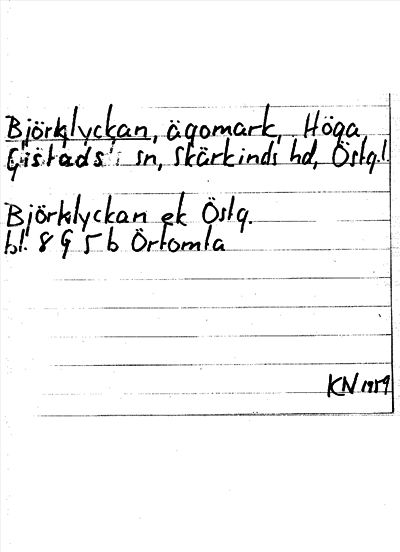 Björklyckan, ägomark, Höga,
Gistads sn, Skärkinds hd, Östg.l.
Björklyckan ek Östg.
bl. 8 G 5 b Örtomta
KN 1959